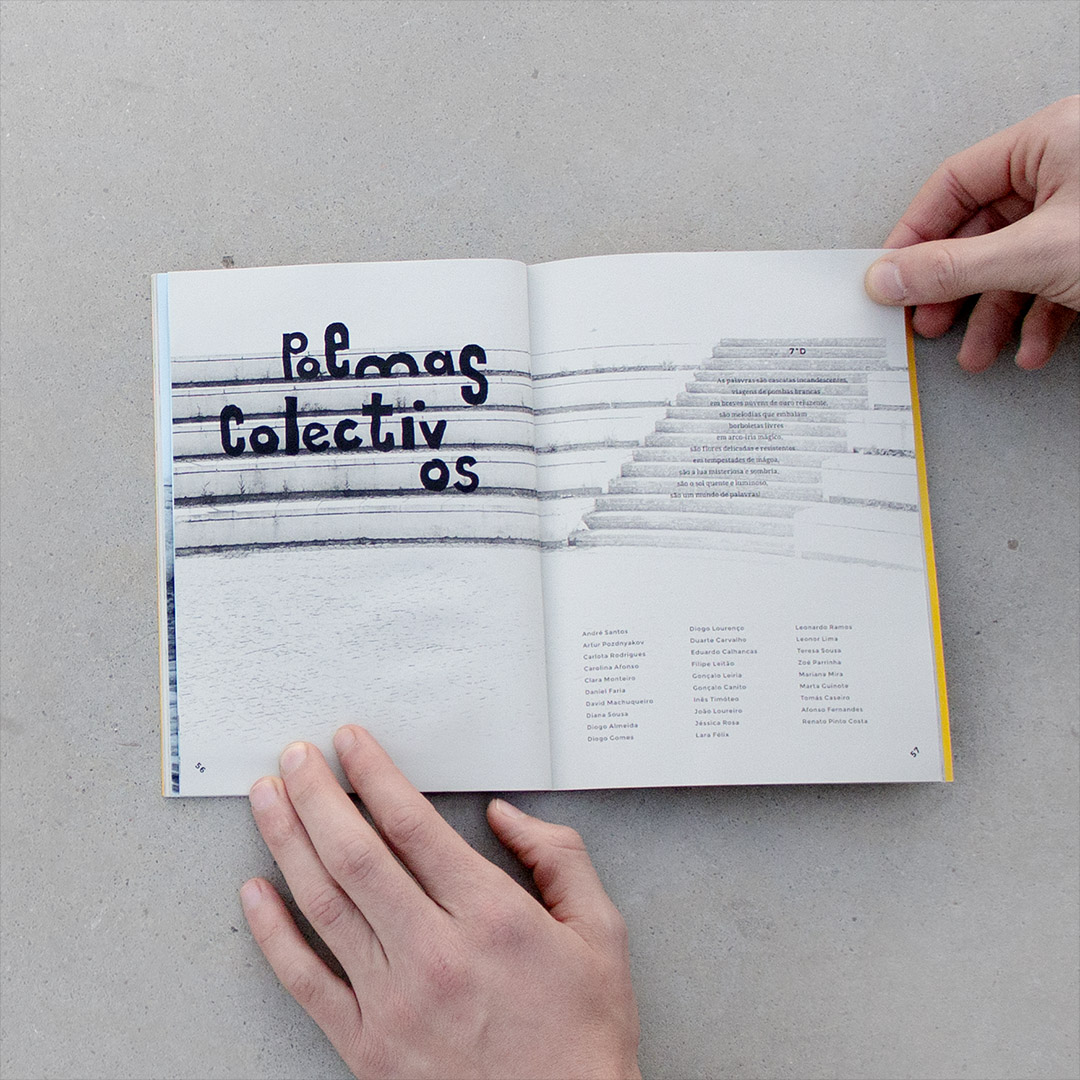 Poemas
Colectiv
os
56
7ºD
As palavras são cascatas incandescentes,
viagens de pombas brancas
em breves nuvens de ouro reluzente,
são melodias que embalam
borboletas livres
em arco-íris mágico,
são flores delicadas e resistentes
em tempestades de mágoa,
são a lua misteriosa e sombria,
são o sol quente e luminoso,
são um mundo de palavras!
André Santos
Artur Pozdnyakov
Carlota Rodrigues
Carolina Afonso
Clara Monteiro
Daniel Faria
David Machuqueiro
Diana Sousa
Diogo Almeida
Diogo Gomes
Diogo Lourenço
Duarte Carvalho
Eduardo Calhancas
Filipe Leitão
Gonçalo Leiria
Gonçalo Canito
Inês Timóteo
João Loureiro
Jéssica Rosa
Lara Félix
Leonardo Ramos
Leonor Lima
Teresa Sousa
Zoé Parrinha
Mariana Mira
Marta Guinote
Tomás Caseiro
Afonso Fernandes
Renato Pinto Costa
57